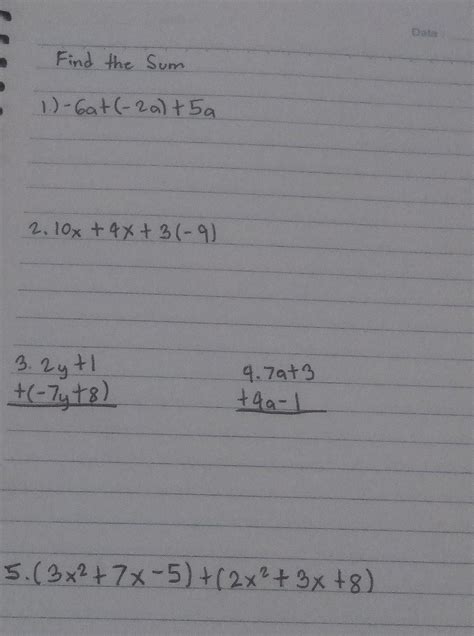 Data
Find the Sum
1.) -6a+(-2a)+5a
2. 10x + 4x + 3(-9)
3. 2y+1
+(-7y+8)
4. 7a+3
+4a-1
5. (3x²+7x-5)+(2x²+3x+8)